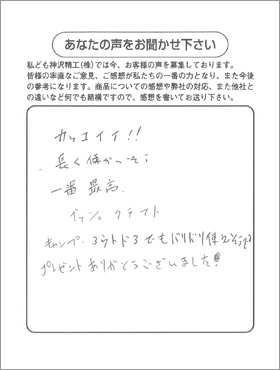 あなたの声をお聞かせ下さい
私ども神沢精工(株)では今、お客様の声を募集しております。
皆様の率直なご意見、ご感想が私たちの一番の力となり、また今後
の参考になります。商品についての感想や弊社の対応、また他社と
の違いなど何でも結構ですので、感想を書いてお送り下さい。
カッコイイ!!
長く使えそう
一番最高
キャンプ アウトドアでもバリバリ使えそうです
プレゼントありがとうございました!